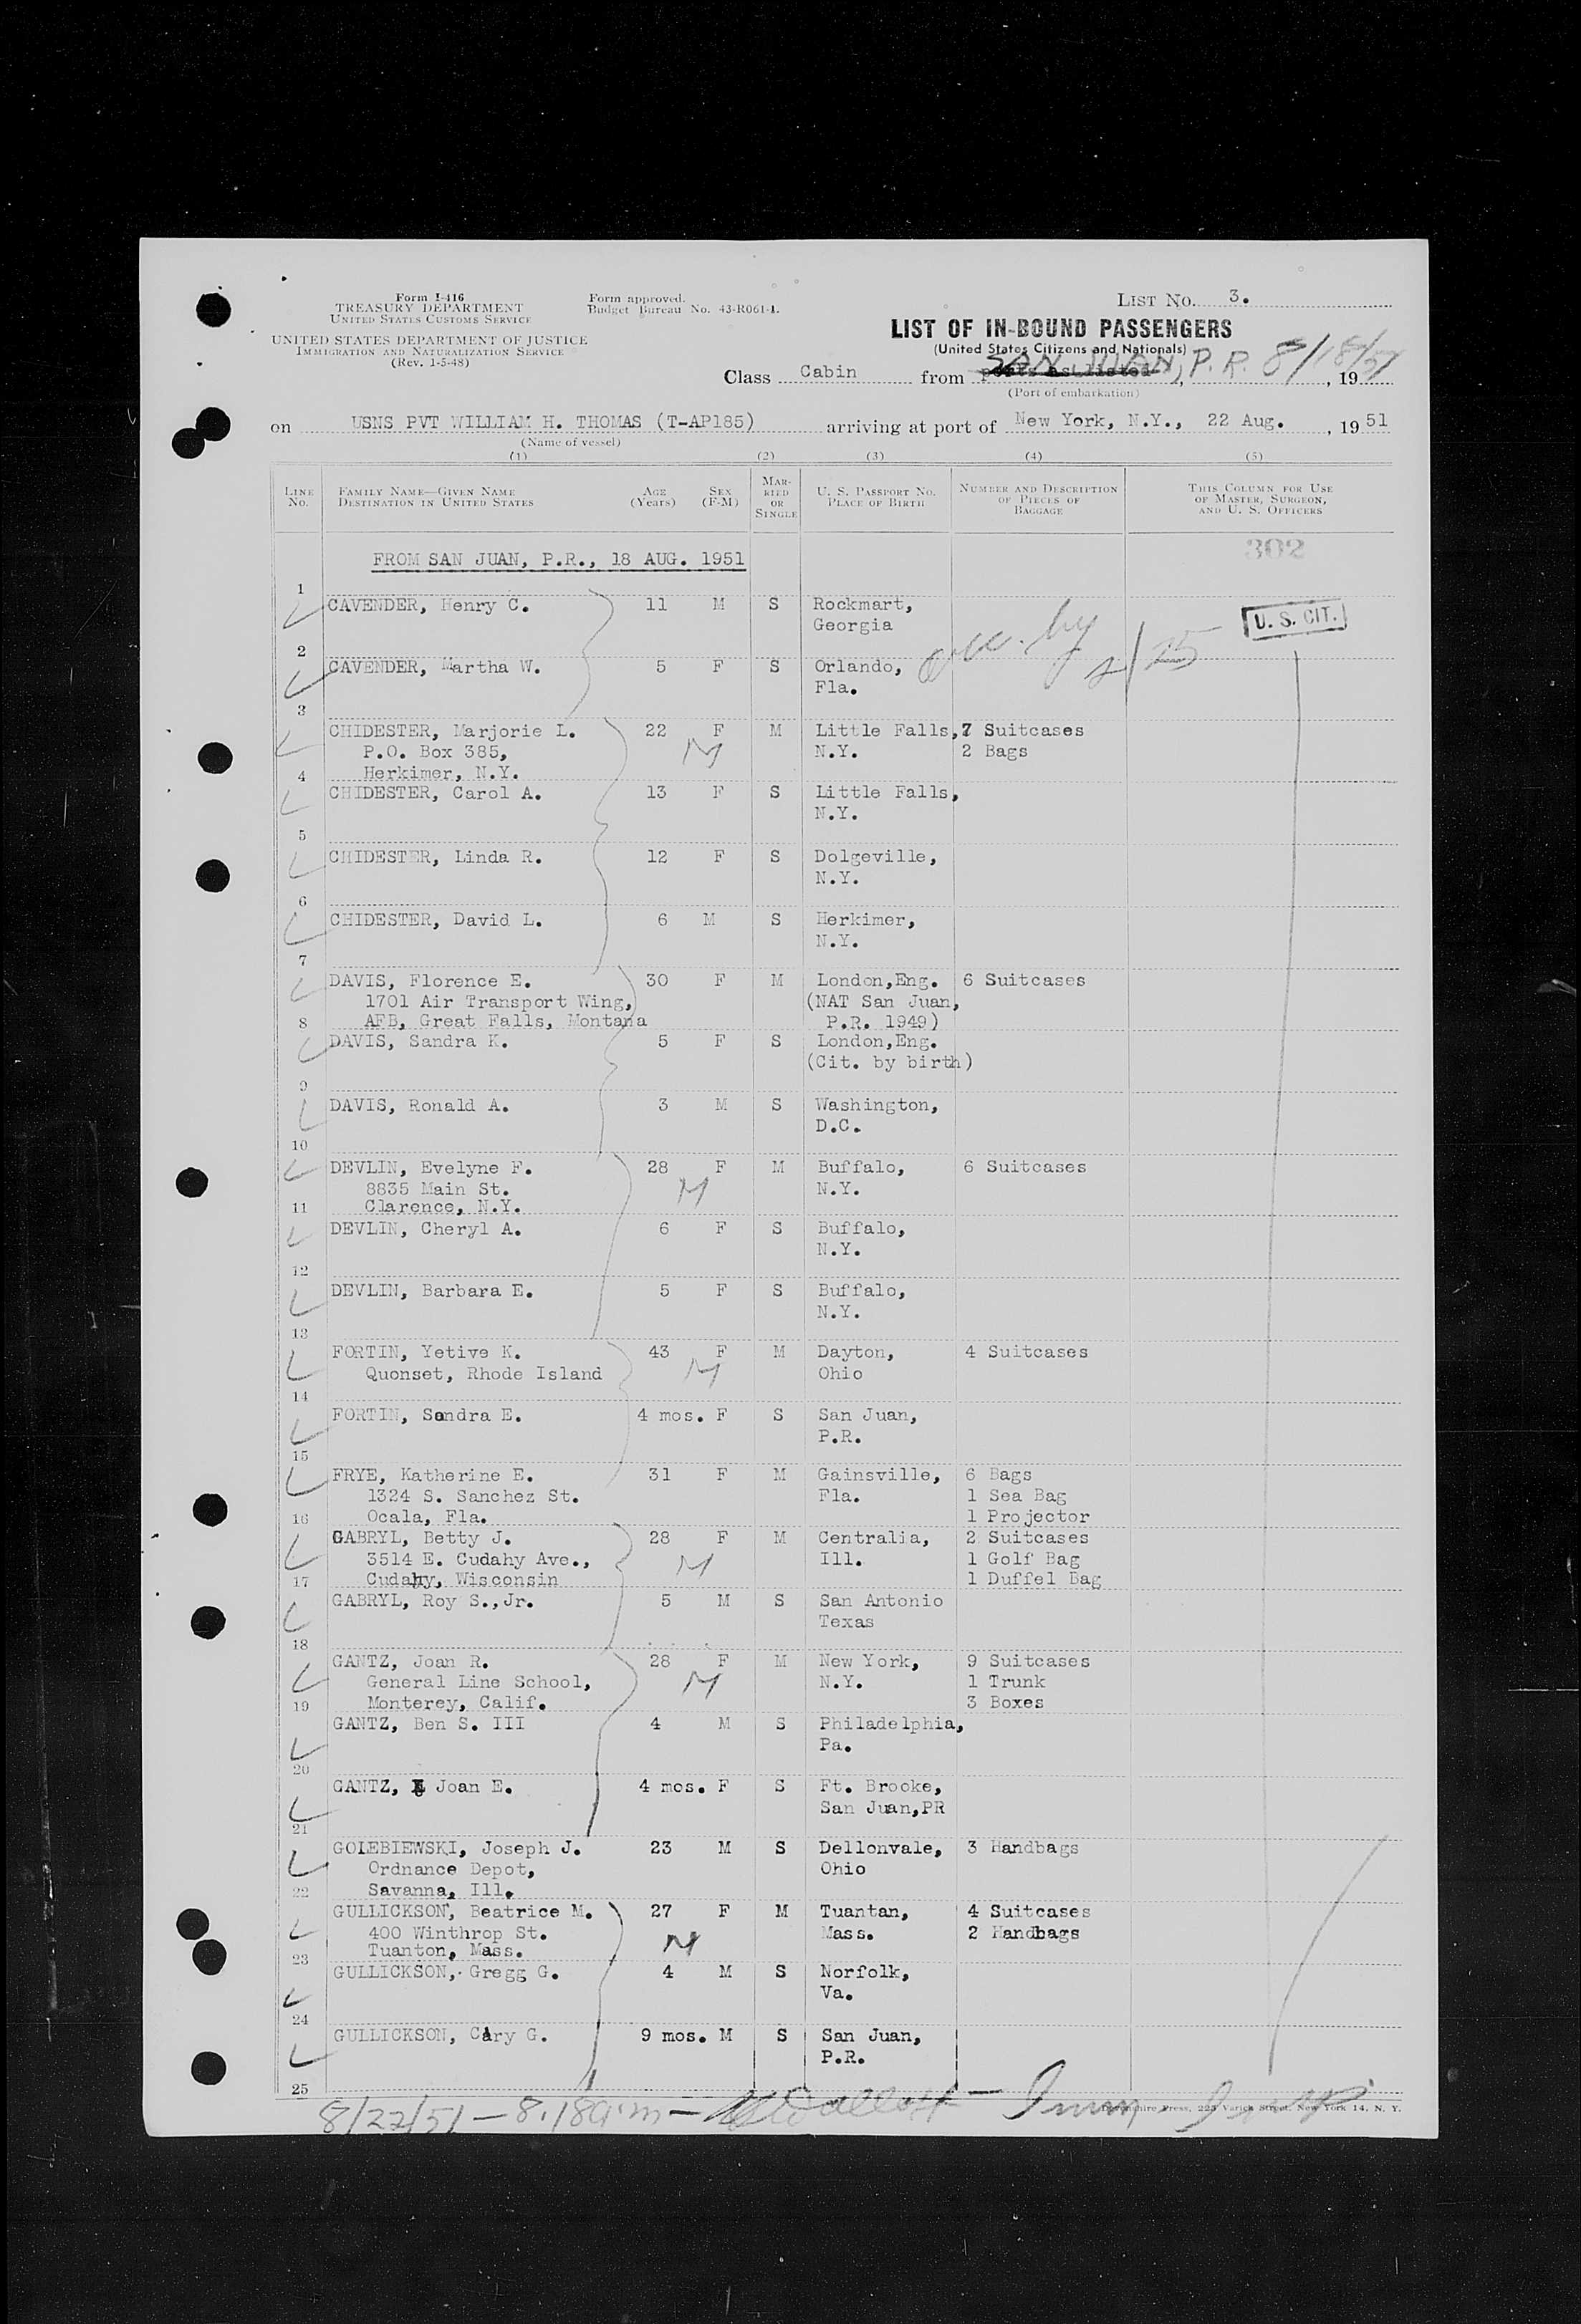 Form I-416
TREASURY DEPARTMENT
UNITED STATES CUSTOMS SERVICE
UNITED STATES DEPARTMENT OF JUSTICE
IMMIGRATION AND NATURALIZATION SERVICE
(Rev. 1-5-48)
Form approved.
Budget Bureau No. 43-R061-1.
LIST NO. 3.
LIST OF IN-BOUND PASSENGERS
(United States Citizens and Nationals)
Class Cabin from SAN JUAN, P.R. 8/18/51, 19
(Port of embarkation)
on USNS PVT WILLIAM H. THOMAS (T-AP185) arriving at port of New York, N.Y., 22 Aug. , 19 51
(Name of vessel)
(1) (2) (3) (4) (5)
LINE NO.
FAMILY NAME—GIVEN NAME
DESTINATION IN UNITED STATES
AGE (Years)
SEX (F-M)
MARRIED OR SINGLE
U. S. PASSPORT NO.
PLACE OF BIRTH
NUMBER AND DESCRIPTION OF PIECES OF BAGGAGE
THIS COLUMN FOR USE OF MASTER, SURGEON, AND U. S. OFFICERS
302
FROM SAN JUAN, P.R., 18 AUG. 1951
1
CAVENDER, Henry C. 11 M S Rockmart,
Georgia
U. S. CIT.
2
CAVENDER, Martha W. 5 F S Orlando,
Fla.
3
CHIDESTER, Marjorie L. 22 F M Little Falls, 7 Suitcases
P.O. Box 385, M N.Y. 2 Bags
4 Herkimer, N.Y.
CHIDESTER, Carol A. 13 F S Little Falls,
N.Y.
5
CHIDESTER, Linda R. 12 F S Dolgeville,
N.Y.
6
CHIDESTER, David L. 6 M S Herkimer,
N.Y.
7
DAVIS, Florence E. 30 F M London,Eng. 6 Suitcases
1701 Air Transport Wing, (NAT San Juan,
8 AFB, Great Falls, Montana P.R. 1949)
DAVIS, Sandra K. 5 F S London,Eng.
(Cit. by birth)
9
DAVIS, Ronald A. 3 M S Washington,
D.C.
10
DEVLIN, Evelyne F. 28 F M Buffalo, 6 Suitcases
8835 Main St. M N.Y.
11 Clarence, N.Y.
DEVLIN, Cheryl A. 6 F S Buffalo,
N.Y.
12
DEVLIN, Barbara E. 5 F S Buffalo,
N.Y.
13
FORTIN, Yetive K. 43 F M Dayton, 4 Suitcases
Quonset, Rhode Island M Ohio
14
FORTIN, Sandra E. 4 mos. F S San Juan,
P.R.
15
FRYE, Katherine E. 31 F M Gainsville, 6 Bags
1324 S. Sanchez St. Fla. 1 Sea Bag
16 Ocala, Fla. 1 Projector
GABRYL, Betty J. 28 F M Centralia, 2 Suitcases
3514 E. Cudahy Ave., M Ill. 1 Golf Bag
17 Cudahy, Wisconsin 1 Duffel Bag
GABRYL, Roy S.,Jr. 5 M S San Antonio
Texas
18
GANTZ, Joan R. 28 F M New York, 9 Suitcases
General Line School, M N.Y. 1 Trunk
19 Monterey, Calif. 3 Boxes
GANTZ, Ben S. III 4 M S Philadelphia,
Pa.
20
GANTZ, Joan E. 4 mos. F S Ft. Brooke,
San Juan,PR
21
GOLEBIEWSKI, Joseph J. 23 M S Dellonvale, 3 Handbags
Ordnance Depot, Ohio
22 Savanna, Ill.
GULLICKSON, Beatrice M. 27 F M Tuantan, 4 Suitcases
400 Winthrop St. M Mass. 2 Handbags
23 Tuanton, Mass.
GULLICKSON, Gregg G. 4 M S Norfolk,
Va.
24
GULLICKSON, Cary G. 9 mos. M S San Juan,
P.R.
25
8/22/51 — 8.18 a.m — Imm Insp.
Press, 225 Varick Street, New York 14, N. Y.